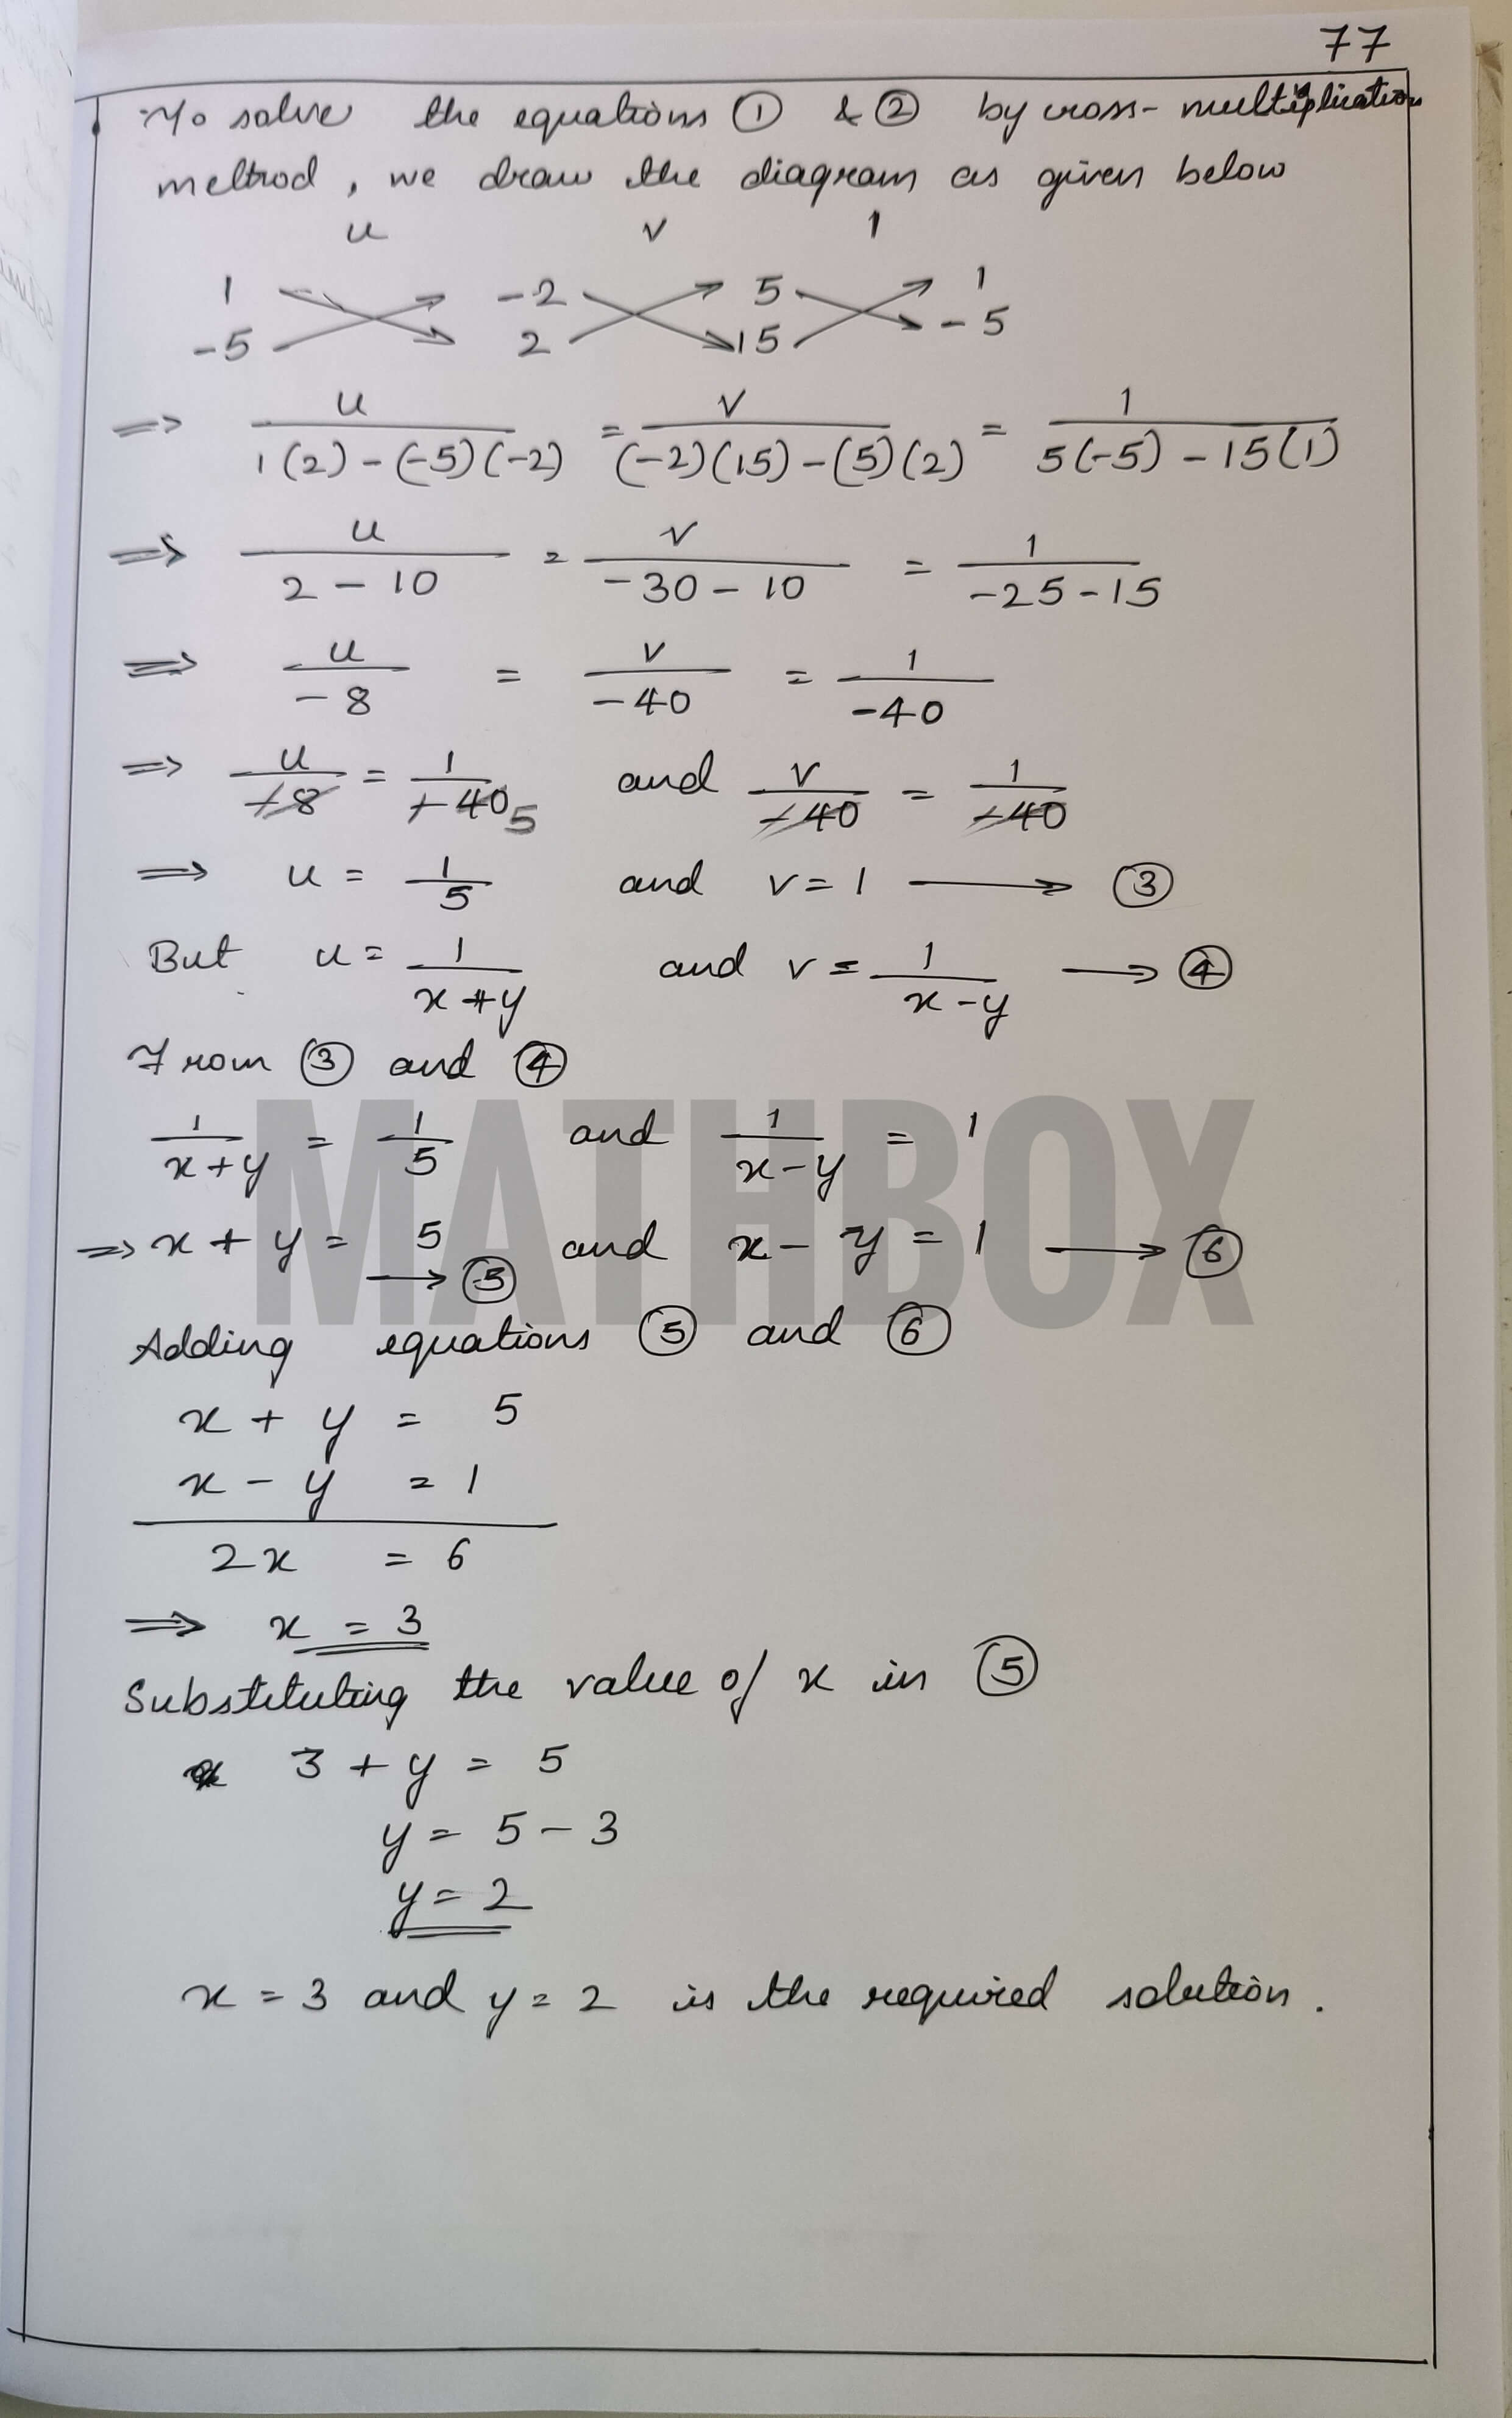 77
To solve the equations ① & ② by cross-multiplication
method, we draw the diagram as given below
u v 1
1 -2 5 1
-5 2 15 -5
⇒ u/(1(2)-(-5)(-2)) = v/((-2)(15)-(5)(2)) = 1/(5(-5)-15(1))
⇒ u/(2-10) = v/(-30-10) = 1/(-25-15)
⇒ u/-8 = v/-40 = 1/-40
⇒ u/-8 = 1/-40 5 and v/-40 = 1/-40
⇒ u = 1/5 and v = 1 → ③
But u = 1/(x+y) and v = 1/(x-y) → ④
From ③ and ④
1/(x+y) = 1/5 and 1/(x-y) = 1
⇒ x + y = 5 → ⑤ and x - y = 1 → ⑥
MATHBOX
Adding equations ⑤ and ⑥
x + y = 5
x - y = 1
2x = 6
⇒ x = 3
Substituting the value of x in ⑤
3 + y = 5
y = 5 - 3
y = 2
x = 3 and y = 2 is the required solution.